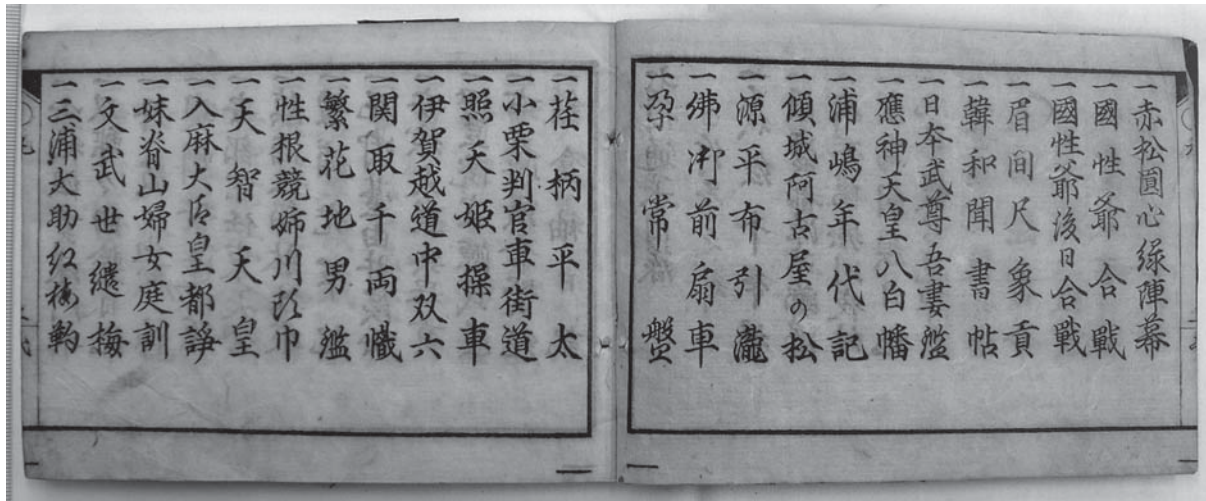 一赤松圓心緑陣幕
一國性爺合戰
一國性爺後日合戰
一眉間尺象貢
一韓和聞書帖
一日本武尊吾妻鑑
一應神天皇八白幡
一浦嶋年代記
一傾城阿古屋の松
一源平布引瀧
一佛御前扇車
一孕常盤
一荏柄平太
一小栗判官車街道
一照天姫操車
一伊賀越道中双六
一関取千両幟
一繁花地男鑑
一性根競姉川頭巾
一天智天皇
一入鹿大臣皇都諍
一妹脊山婦女庭訓
一文武世継梅
一三浦大助紅梅靮